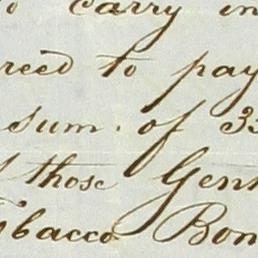 to carry in
reed to pay
sum. of 33
f those Gent
Tobacco Bon